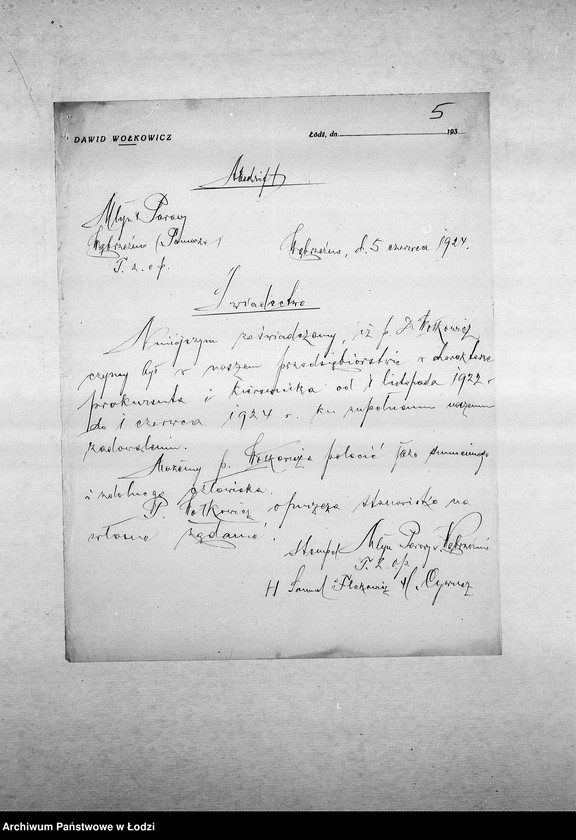 5
DAWID WOŁKOWICZ
Łódź, dn. 193
Abschrift
Młyn Parowy
Wąbrzeźno (Pomorze)
T. z. o. p.
Wąbrzeźno, d. 5 czerwca 1924.
Świadectwo
Niniejszym zaświadczamy, iż p. D. Wołkowicz
czynny był w naszem przedsiębiorstwie w charakterze
prokurenta i kierownika od 1 listopada 1922 r
do 1 czerwca 1924 r. ku zupełnemu naszemu
zadowoleniu.
Możemy p. Wołkowicza polecić jako sumiennego
i zdolnego człowieka.
P. Wołkowicz opuszcza stanowisko na
własne żądanie.
Stempel Młyn Parowy w Wąbrzeźnie
T. z. o. p.
Samuel